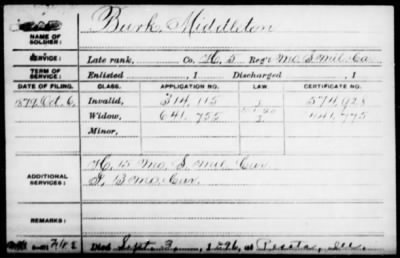 Burk, Middleton
NAME OF SOLDIER:
SERVICE: Late rank, Co. H, 5 Reg't Mo. S. Mil. Cav.
TERM OF SERVICE: Enlisted , 1 Discharged , 1
DATE OF FILING. CLASS. APPLICATION NO. LAW. CERTIFICATE NO.
1879 Oct. 6, Invalid, 314,115 574,928
Widow, 641,755
Minor,
ADDITIONAL SERVICES:
H. 13 Mo. S. Mil. Cav.
F. 13 Mo. Cav.
REMARKS:
Died Sept. 3, 1896, at